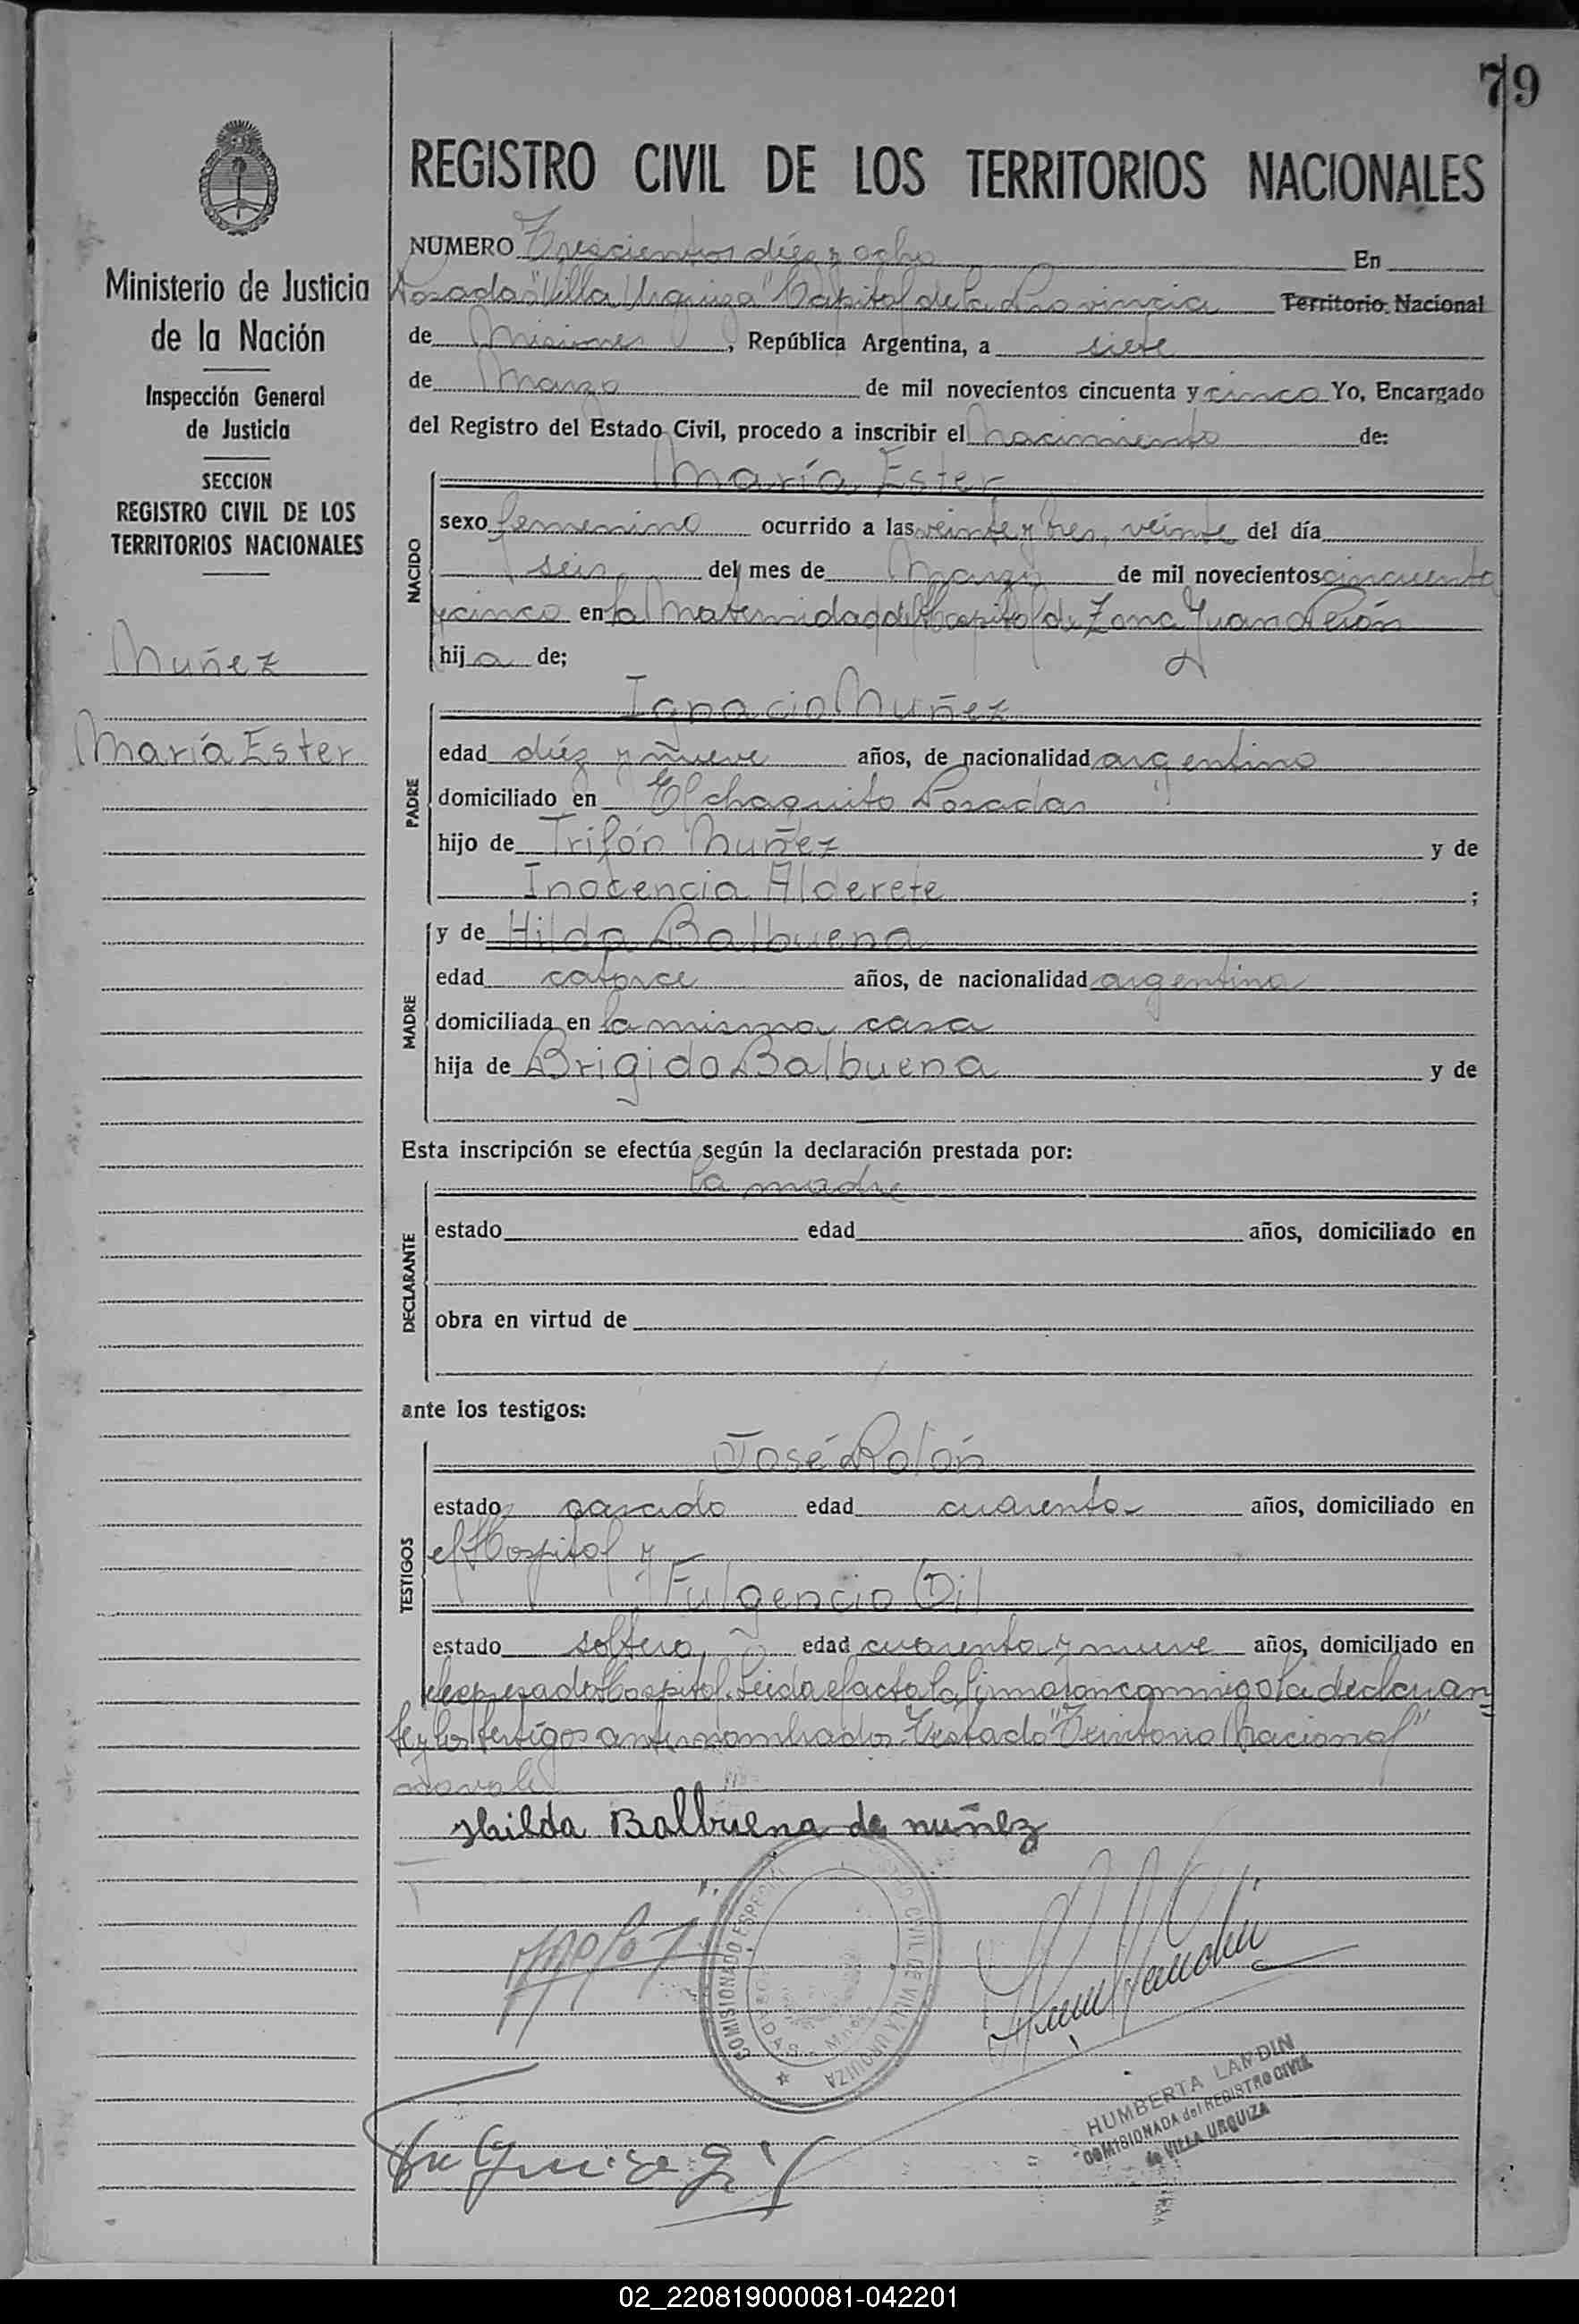 79
REGISTRO CIVIL DE LOS TERRITORIOS NACIONALES
Ministerio de Justicia
de la Nación
Inspección General
de Justicia
SECCION
REGISTRO CIVIL DE LOS
TERRITORIOS NACIONALES
Muñez
María Ester
NUMERO Trescientos diéz y ocho En
Posadas "Villa Urquiza" Capital de la Provincia Territorio Nacional
de Misiones, República Argentina, a siete
de Marzo de mil novecientos cincuenta y cinco Yo, Encargado
del Registro del Estado Civil, procedo a inscribir el nacimiento de:
NACIDO
María Ester
sexo femenino ocurrido a las veinte y tres, veinte del día
seis del mes de Marzo de mil novecientos cincuenta
y cinco en la Maternidad del Hospital de Zona Juan Perón
hija de;
PADRE
Ignacio Muñez
edad diéz y nueve años, de nacionalidad argentino
domiciliado en El chaquito Posadas
hijo de Trifón Muñez y de
Inocencia Alderete ;
MADRE
y de Hilda Balbuena
edad catorce años, de nacionalidad argentina
domiciliada en la misma casa
hija de Brigido Balbuena y de
Esta inscripción se efectúa según la declaración prestada por:
DECLARANTE
la madre
estado edad años, domiciliado en
obra en virtud de
ante los testigos:
TESTIGOS
José Rolón
estado casado edad cuarenta años, domiciliado en
el Hospital y
Fulgencio Gil
estado soltero, edad cuarenta y nueve años, domiciliado en
el expresado Hospital. Leida el acta la firmaron conmigo la declaran=
te y los testigos antes nombrados. Testado "Territorio Nacional"
no vale
Hilda Balbuena de nuñez
COMISIONADO ESPECIAL CIVIL DE VILLA URQUIZA
POSADAS - Mnes
HUMBERTA LANDIN
COMISIONADA del REGISTRO CIVIL
de VILLA URQUIZA
02_220819000081-042201